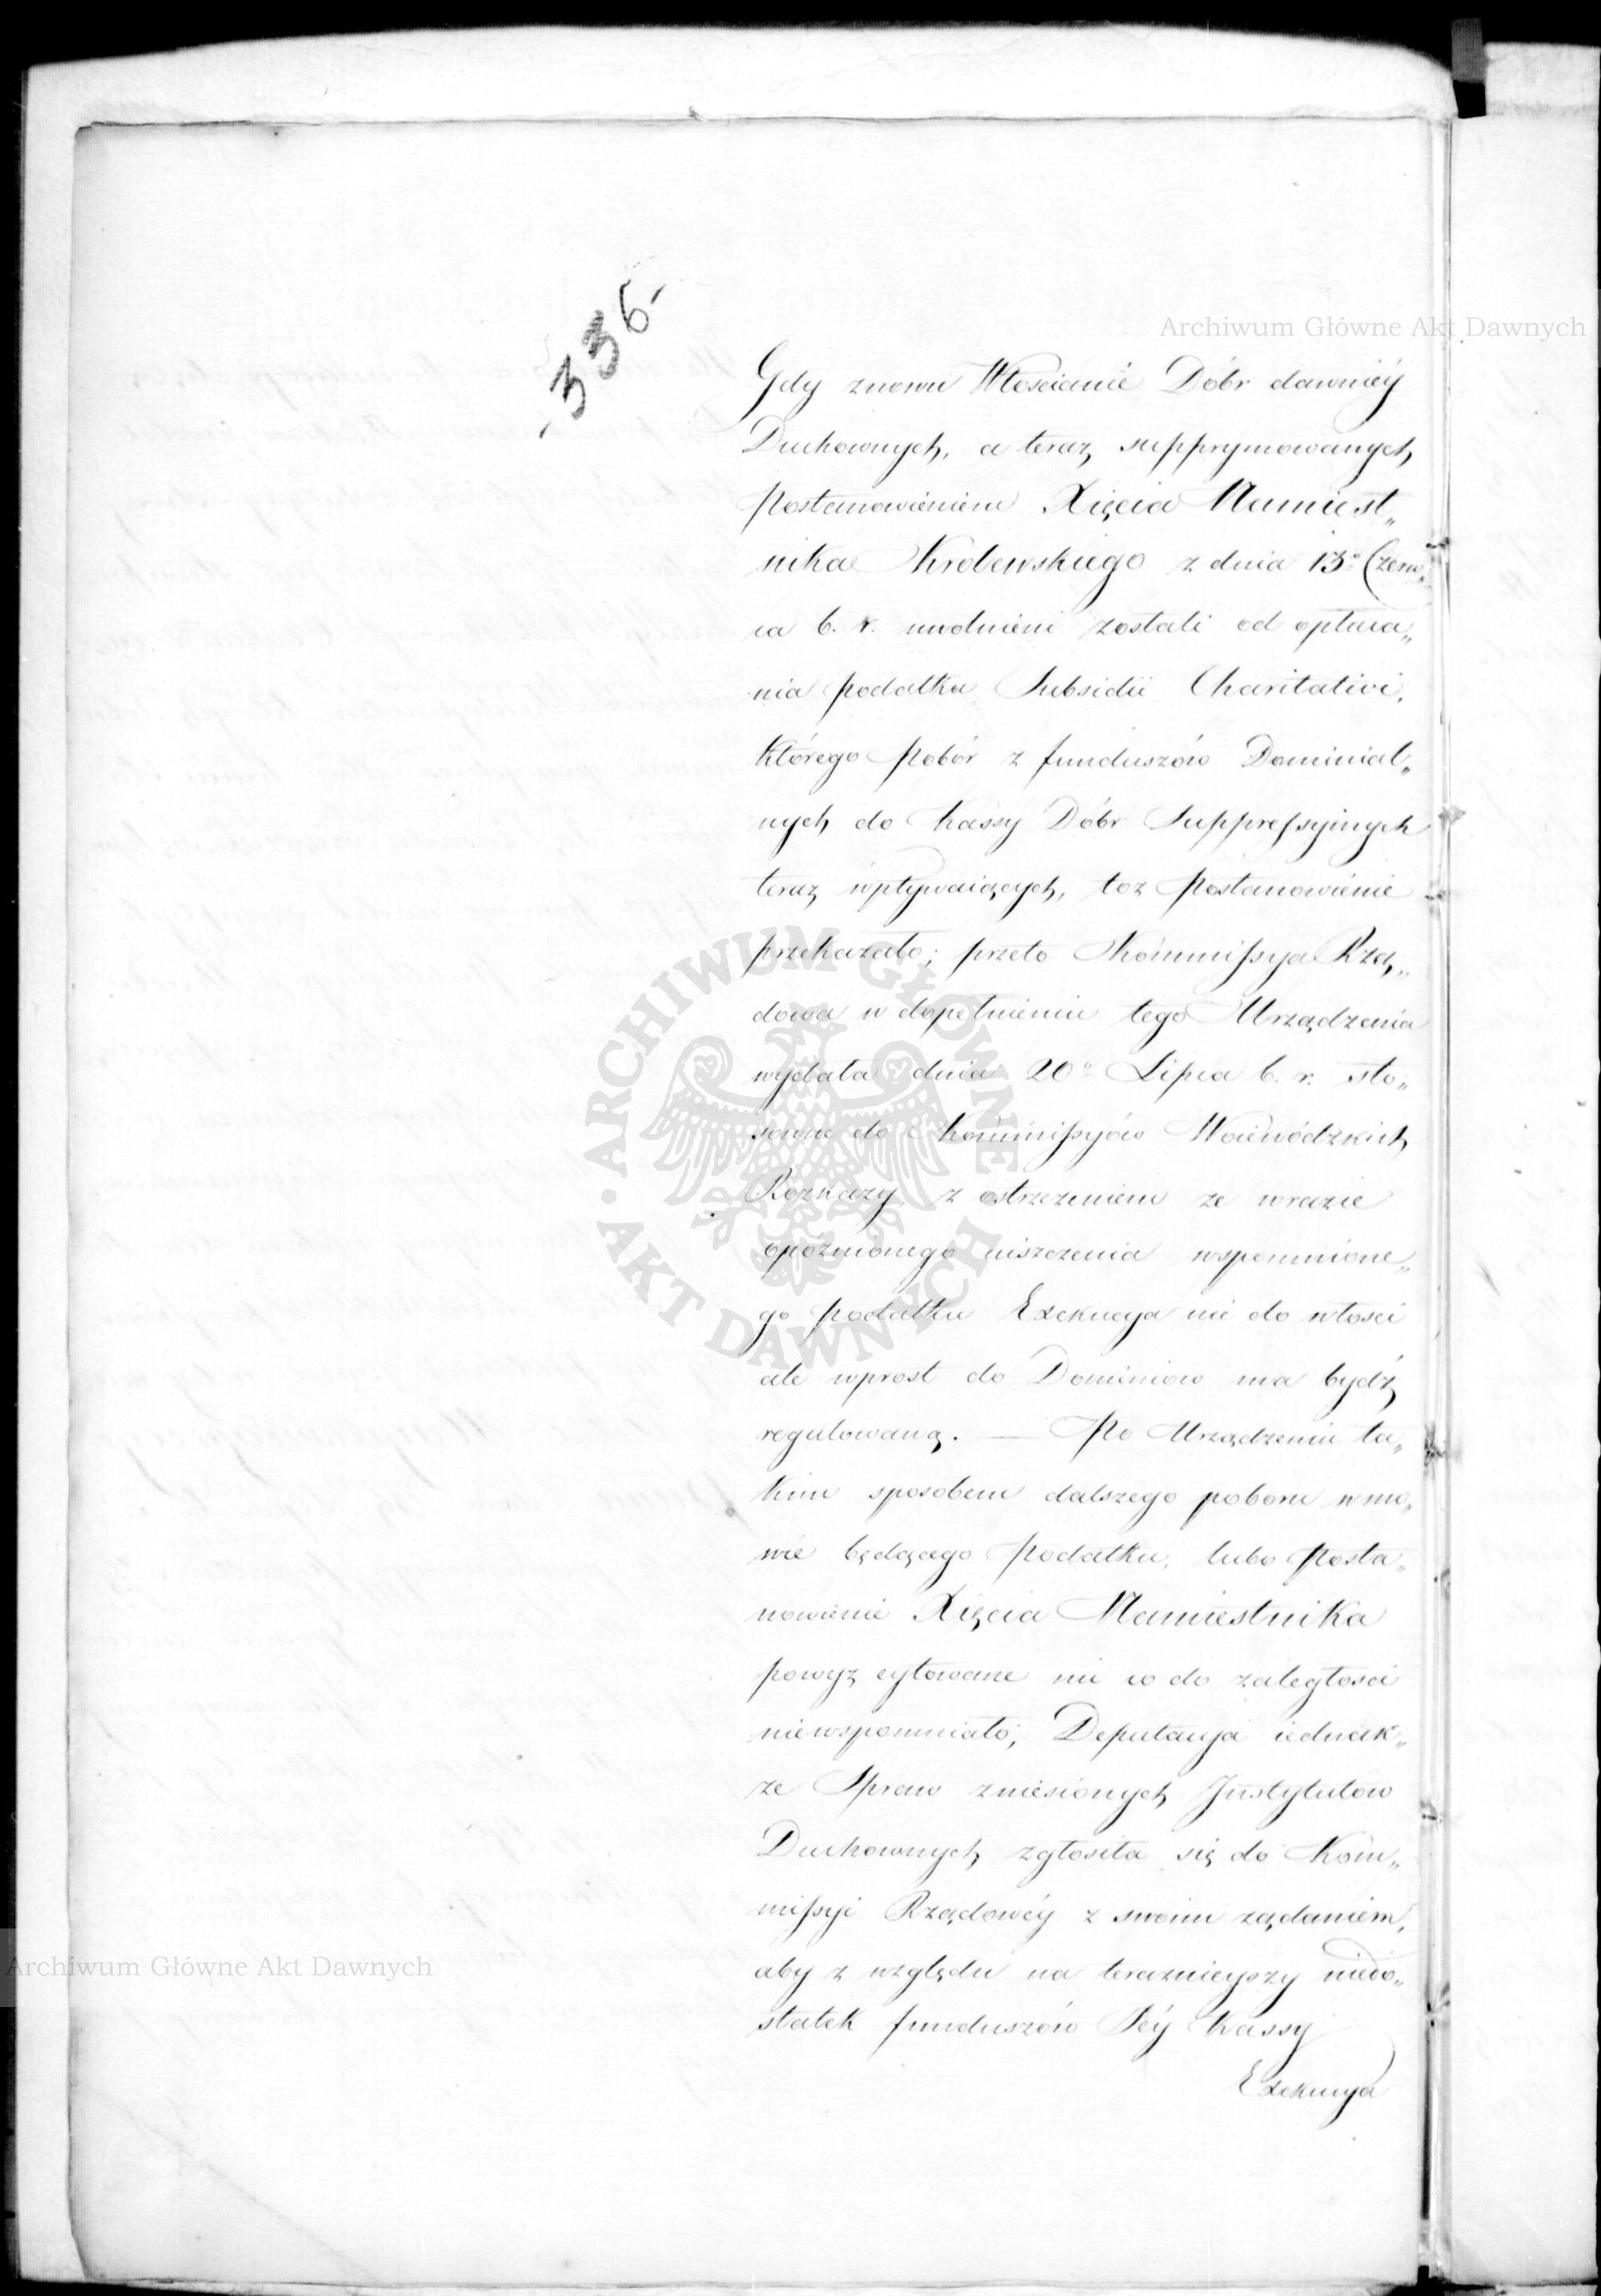 -336-
Archiwum Główne Akt Dawnych
Gdy znowu Włoscianié Dóbr dawniéy
Duchownych, a teraz supprymowanych
Postanowieniem Xięcia Namiest„
nika Krolewskiego z dnia 13º Czerw„
ca b. r. uwolnieni zostali od opłaca„
nia podatku Subsidii Charitativi,
którego pobór z funduszów Dominial„
nych do Kassy Dóbr Suppressyinych
teraz wpływaiących, toz Postanowiénie
przekazało; przeto Kommissya Rzą„
dowa w dopełnieniu tego Urządzenia
wydała dnia 20º Lipca b. r. sto„
sowne do Kommissyów Woiewódzkich
Rozkazy, z ostrzezeniem ze w razie
opóźnionego uiszczenia wspomnione„
go podatku Exekucya nie do włosci
ale wprost do Dominiow ma bydź
regulowaną. — Po Urządzeniu ta„
kim sposobem dalszego poboru w mo„
wie będącego Podatku, lubo Posta„
nowienie Xięcia Namiestnika
powyz cytowane nic co do zaległosci
niewspomniało; Deputacya iednak„
ze Spraw zniesionych Jnstytutow
Duchownych zgłosiła się do Kom„
missyi Rządowéy z swoim ządaniem,
aby z względu na teraznieyszy niedo„
statek funduszów Jéy Kassy
Exekucya
Archiwum Główne Akt Dawnych
ARCHIWUM GŁÓWNE
AKT DAWNYCH